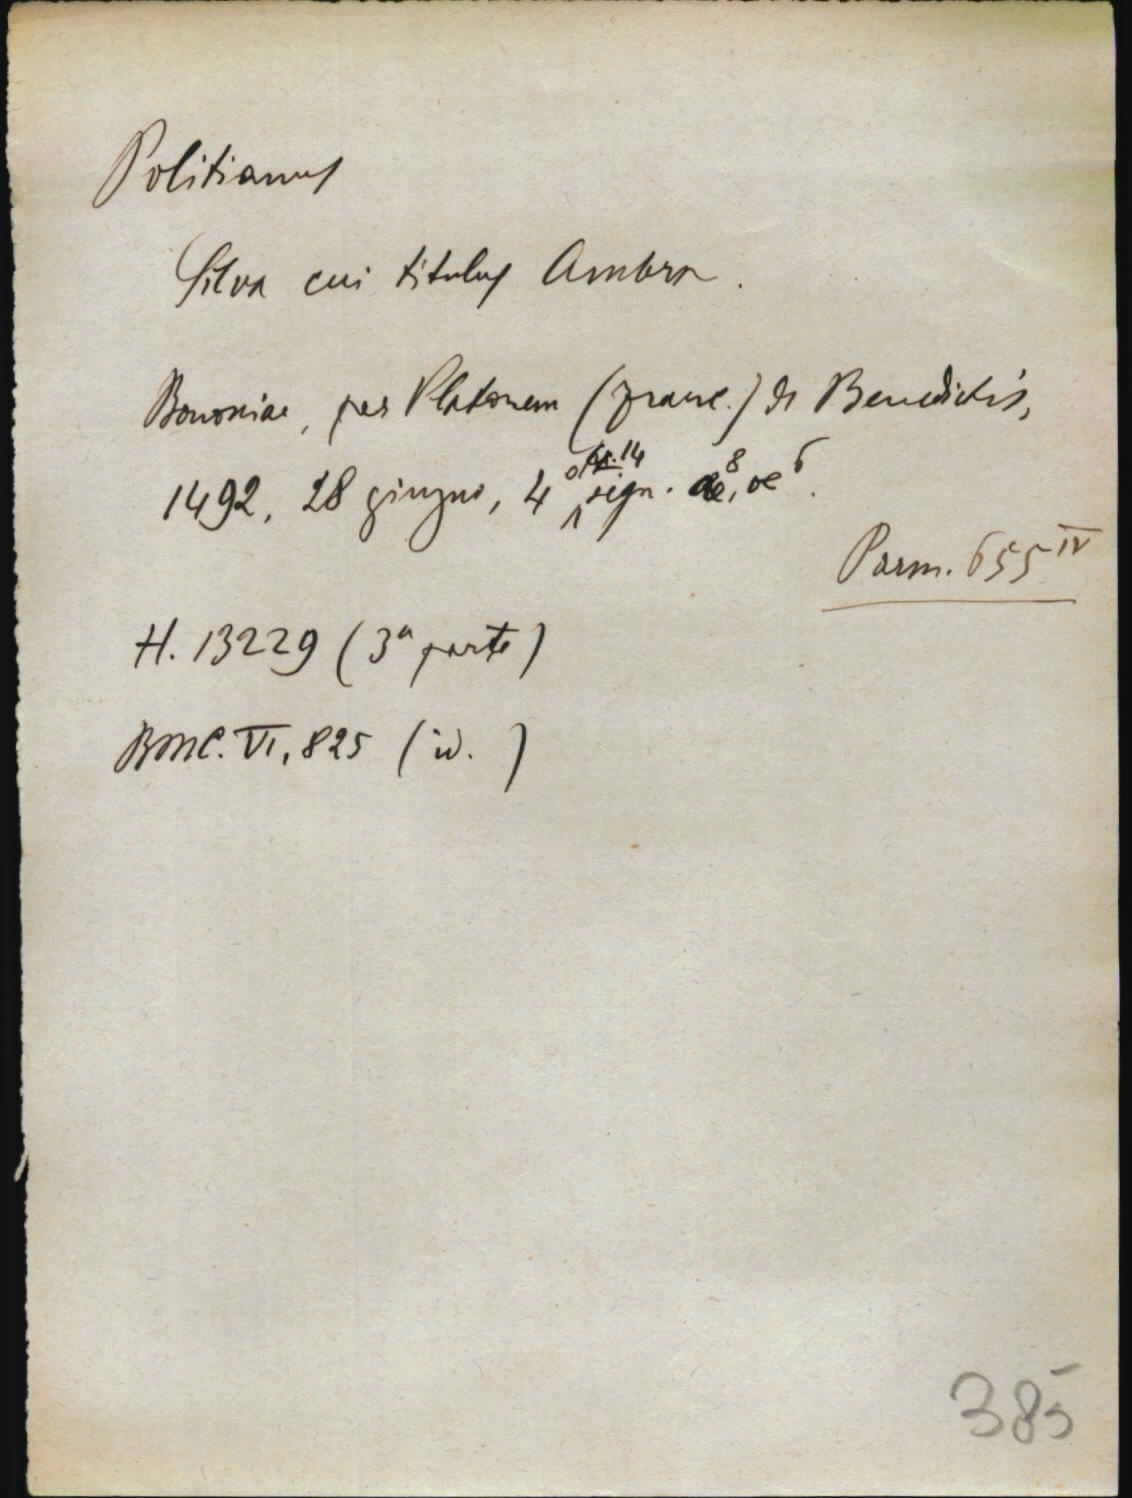 Politianus
Silva cui titulus Ambra.
Bononiae, per Platonem (Franc.) de Benedictis,
1492, 28 giugno, 4° cc. 14 sign. ae⁸, oe⁶.
Parm. 655 IV
H. 13229 (3ª parte)
BMC. VI, 825 (id.)
385